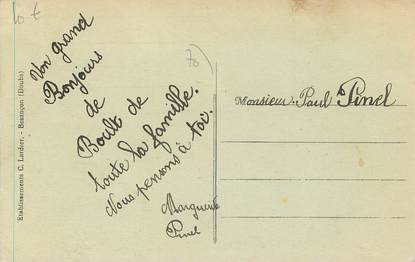 10 €
70
Un grand
Bonjours
de
Boult de
toute la famille.
Nous pensons à toi.
Marguerite
Pinel
Monsieur Paul Pinel
Etablissements C. Lardier, - Besançon (Doubs)